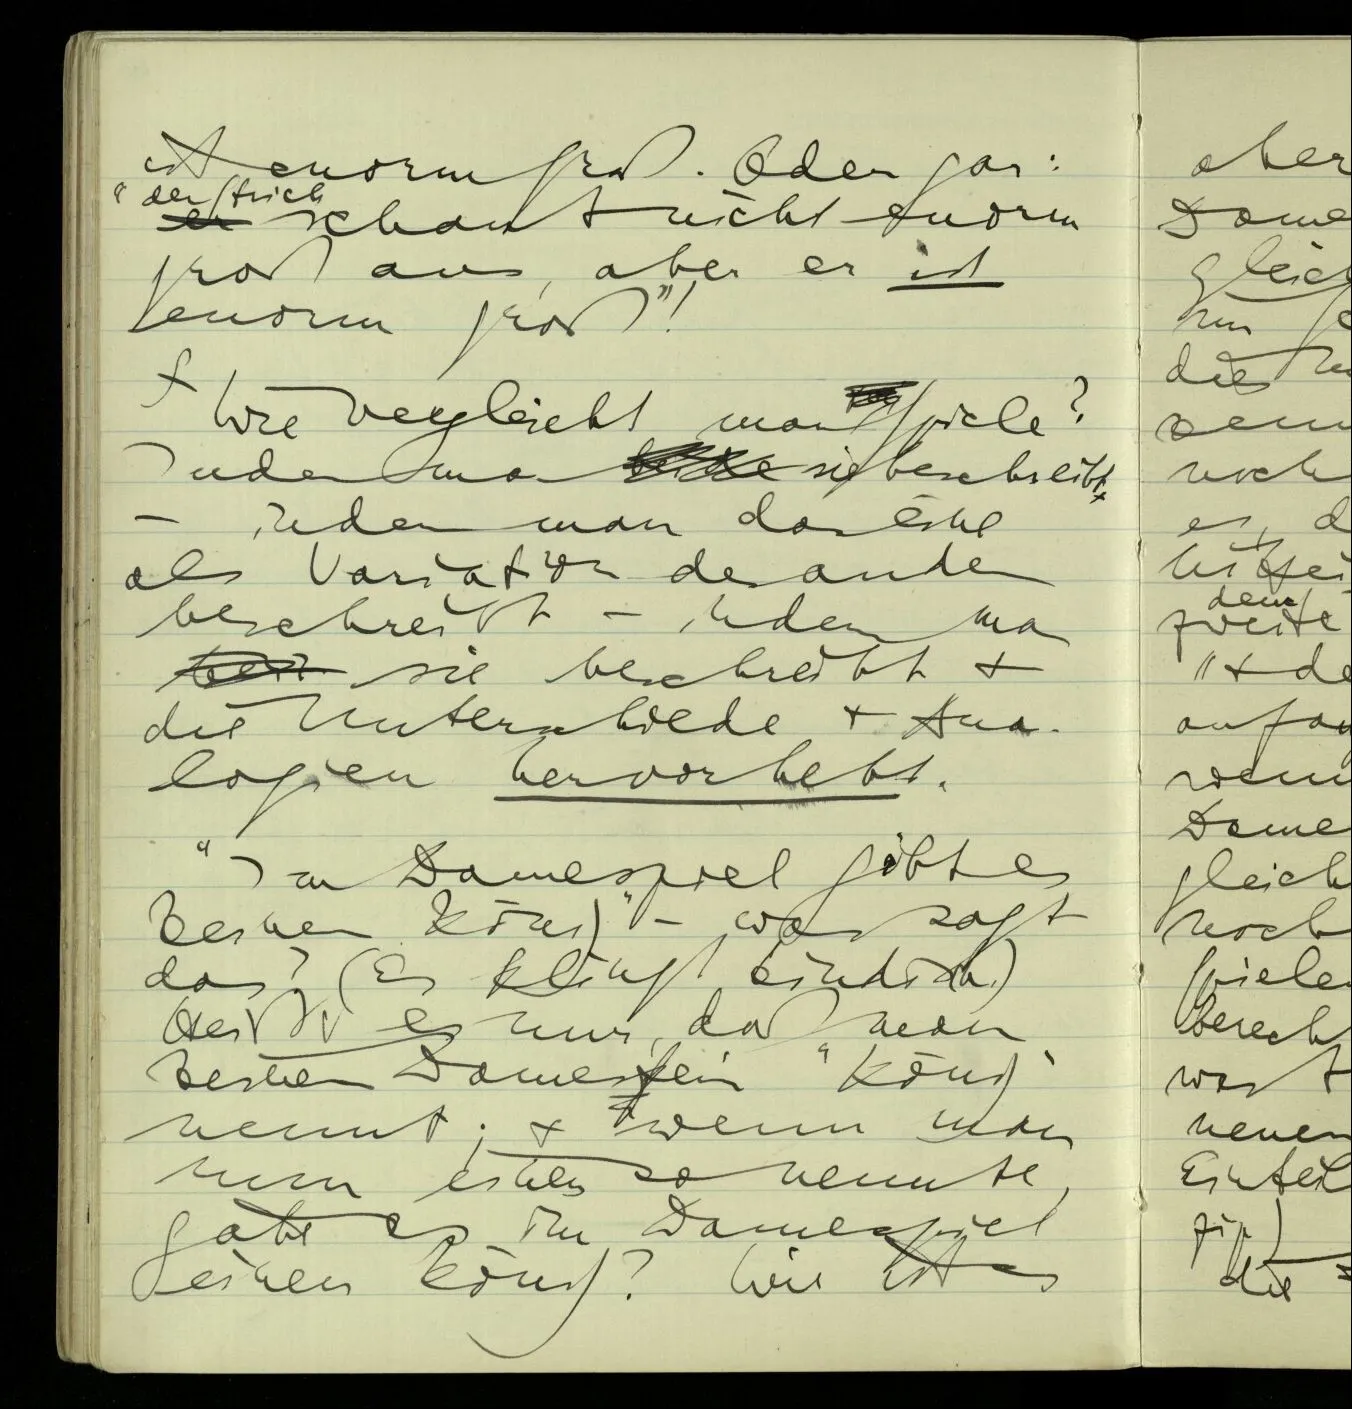 ist enorm groß. Oder gar:
"der Strich
er schaut nicht enorm
groß aus, aber er ist
enorm groß"!
Wie vergleicht man Spiele?
Indem man beide sie beschreibt
– indem man das eine
als Variation des anderen
beschreibt – indem man
sie beschreibt +
die Unterschiede + Ana-
logien hervorhebt.
"Im Damespiel gibt es
keinen König" – was sagt
das? (Es klingt kindisch.)
Heißt es nur, daß man
keinen Damestein "König"
nennt; + wenn man
nun einen so nennte,
gäbe es im Damespiel
einen König? Wie ist es
aber
Dame
gleich
nun
dies
noch
es, d
dem
zweite
"+ de
anfan
wenn
Dame
gleich
noch
spiele
berech
was
neuen
Einteil
zip
die